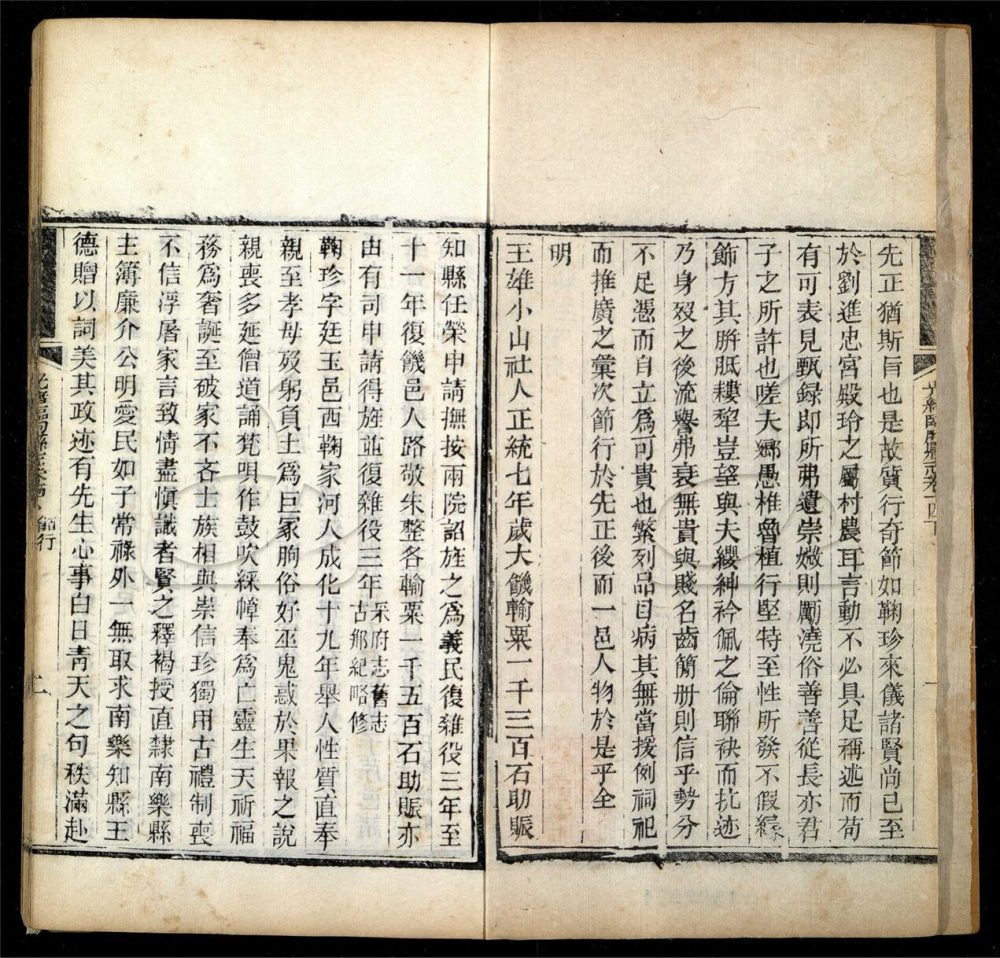 先正猶斯旨也是故質行奇節如鞠珍來儀諸賢尚已至
於劉進忠宮殿玲之屬村農耳言動不必具足稱述而苟
有可表見甄録即所弗遺崇媺則厲澆俗善善從長亦君
子之所許也嗟夫鄉愚椎魯植行堅特至性所發不假緣
飾方其胼胝耬犂豈望與夫纓紳衿佩之倫聯袂而抗迹
乃身歿之後流譽弗衰無貴與賤名齒簡册則信乎勢分
不足憑而自立爲可貴也繁列品目病其無當援例祠祀
而推廣之彙次節行於先正後而一邑人物於是乎全
明
王雄小山社人正統七年歲大饑輸粟一千三百石助賑
知縣任榮申請撫按兩院詔旌之爲義民復雜役三年至
十一年復饑邑人路敬朱整各輸粟一千五百石助賑亦
由有司申請得旌並復雜役三年采府志舊志古鄉紀略修
鞠珍字廷玉邑西鞠家河人成化十九年舉人性質直奉
親至孝母歿躬負土爲巨冢朐俗好巫鬼惑於果報之說
親喪多延僧道誦梵唄作鼓吹綵幛奉爲亡靈生天祈福
務爲奢誕至破家不吝士族相與崇信珍獨用古禮制喪
不信浮屠家言致情盡愼識者賢之釋褐授直隸南樂縣
主簿廉介公明愛民如子常祿外一無取求南樂知縣王
德贈以詞美其政迹有先生心事白日靑天之句秩滿赴
節行
二